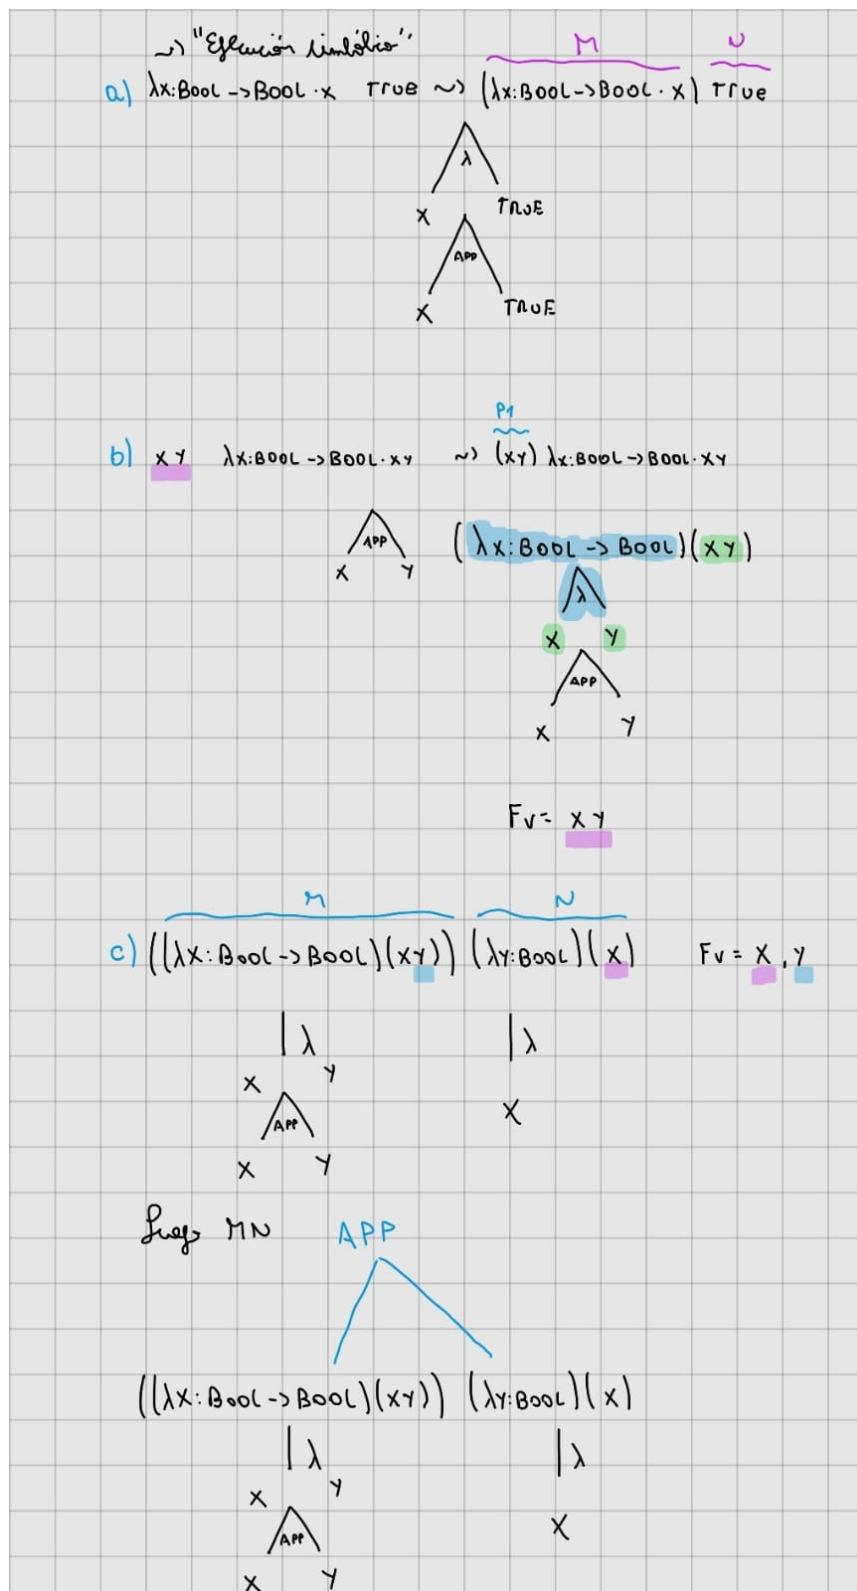 ~> "Ejecución simbólica"
M N
a) λx:BOOL->BOOL·x True ~> (λx:BOOL->BOOL·x) True
λ
X TRUE
APP
X TRUE
P1
b) XY λx:BOOL->BOOL·XY ~> (XY) λx:BOOL->BOOL·XY
(λx:BOOL->BOOL)(XY)
APP
X Y
λ
X Y
APP
X Y
Fv= XY
M N
c) ((λx:BOOL->BOOL)(XY)) (λY:BOOL)(X) Fv = X, Y
λ λ
X Y
APP X
X Y
Luego MN APP
((λx:BOOL->BOOL)(XY)) (λY:BOOL)(X)
λ λ
X Y
APP X
X Y